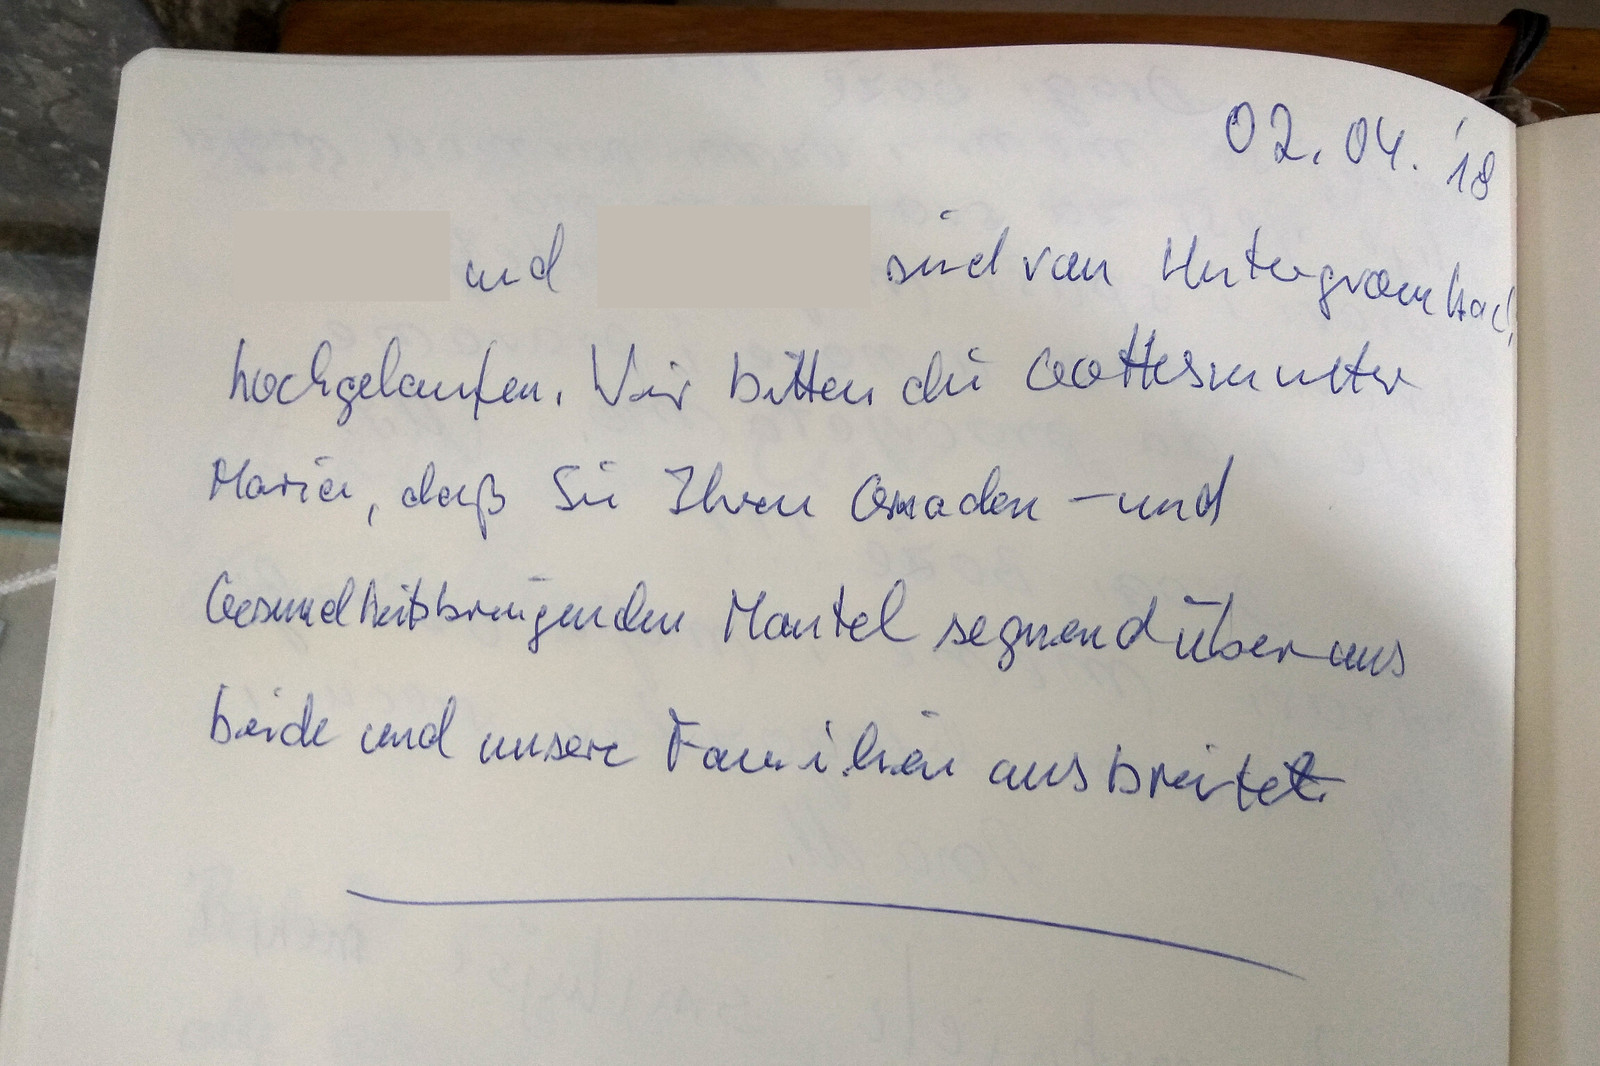 02.04.'18
und sind von Hintergrambach
hochgelaufen. Wir bitten die Gottesmutter
Maria, daß Sie Ihren Gnaden - und
Gesundheitsbringenden Mantel segnend über uns
beide und unsere Familien ausbreitet.